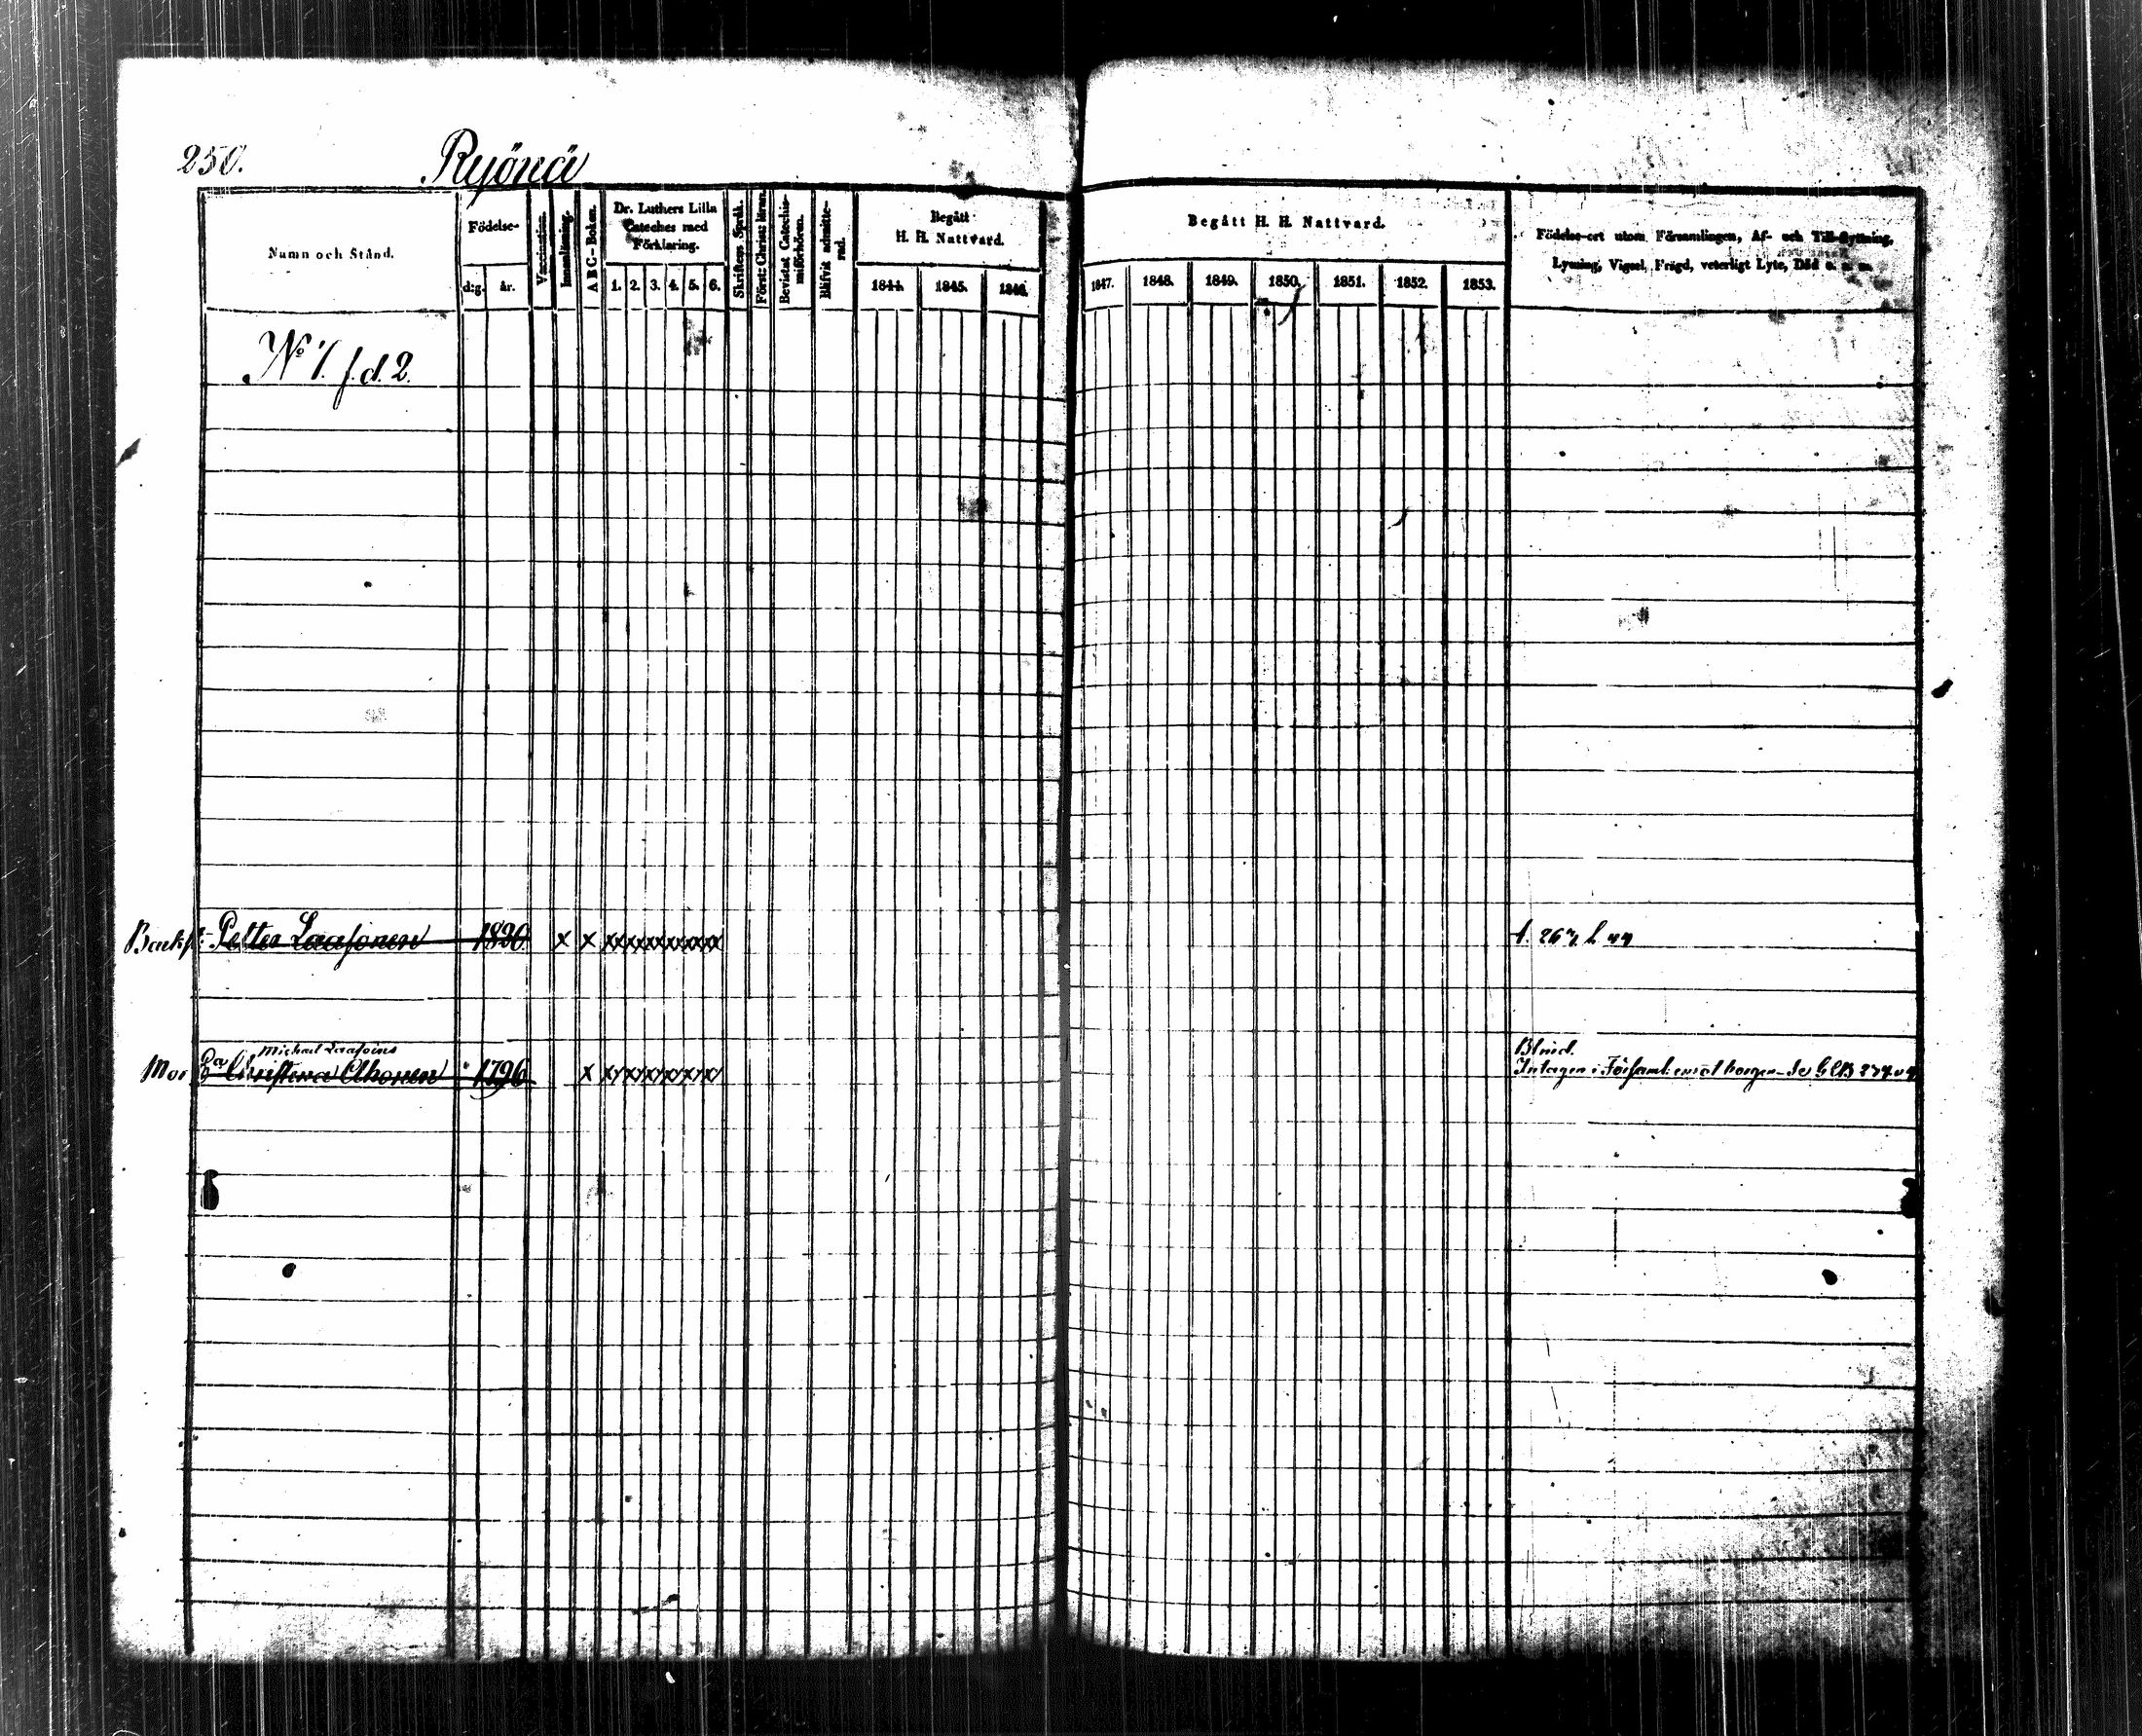 250. Ryönä
Namn och Stånd.
Födelse-
d:g. år.
Vaccination.
Innanläsning.
A B C-Boken.
Dr. Luthers Lilla
Cateches med
Förklaring.
1. 2. 3. 4. 5. 6.
Skriftens Språk.
Först: Christ: läran.
Bevistat Catechis-
miförhören.
Blifvit admitte-
rad.
Begått
H. H. Nattvard.
1844. 1845. 1846.
Begått H. H. Nattvard.
1847. 1848. 1849. 1850. 1851. 1852. 1853.
Födelse-ort utom Församlingen, Af- och Till-flyttning,
Lysning, Vigsel, Frägd, veterligt Lyte, Död o. s. m.
No 1. f. d. 2.
Petter Laasonen 1820 x x xxxxxxxxxxx
Michael Laasoins
Blind.
Mor Christina Ahonen 1796 x xxxxxxxxx Intagen i Församl: